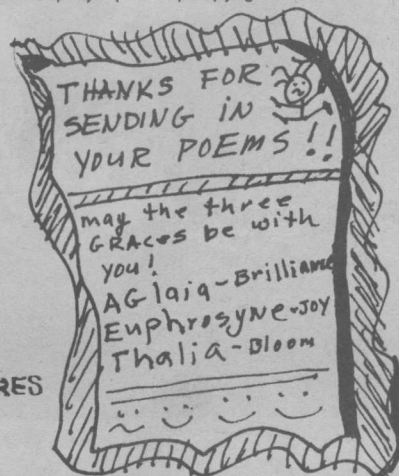 THANKS FOR
SENDING IN
YOUR POEMS!!
may the three
GRACes be with
you!
AGlaia-Brilliance
Euphrosyne-Joy
Thalia-Bloom
RES